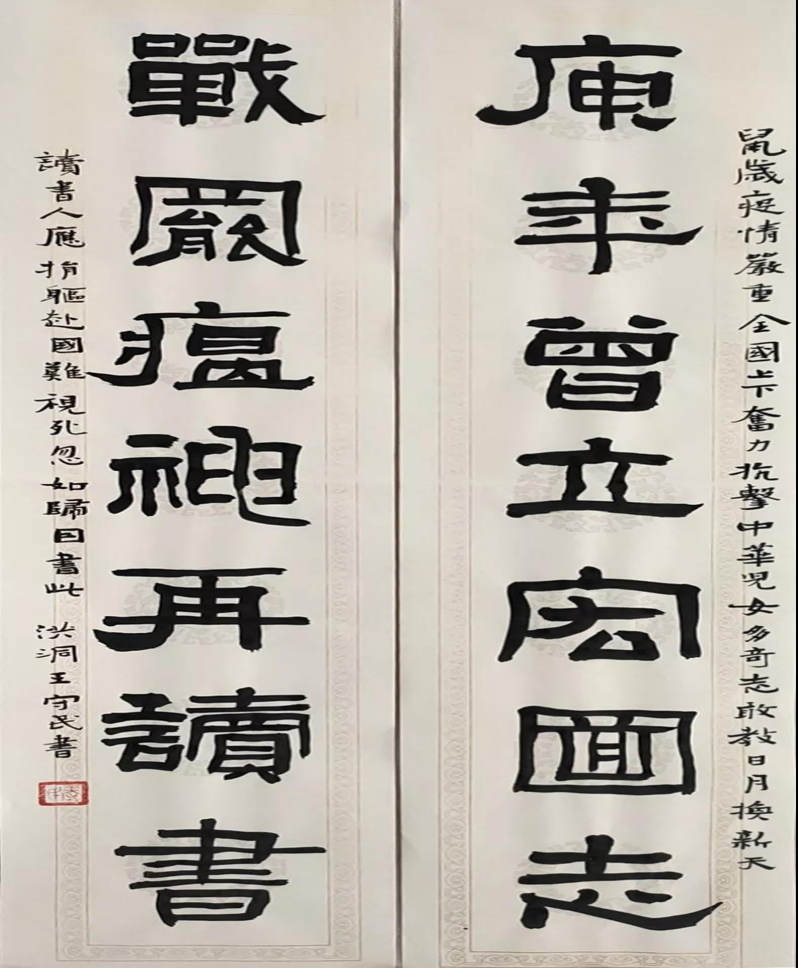 鼠歲疫情嚴重全國上下奮力抗擊中華兒女多奇志敢教日月換新天
庚年曾立宏圖志
戰罷瘟神再讀書
讀書人應捐軀赴國難視死忽如歸因書此 洪洞王守民書